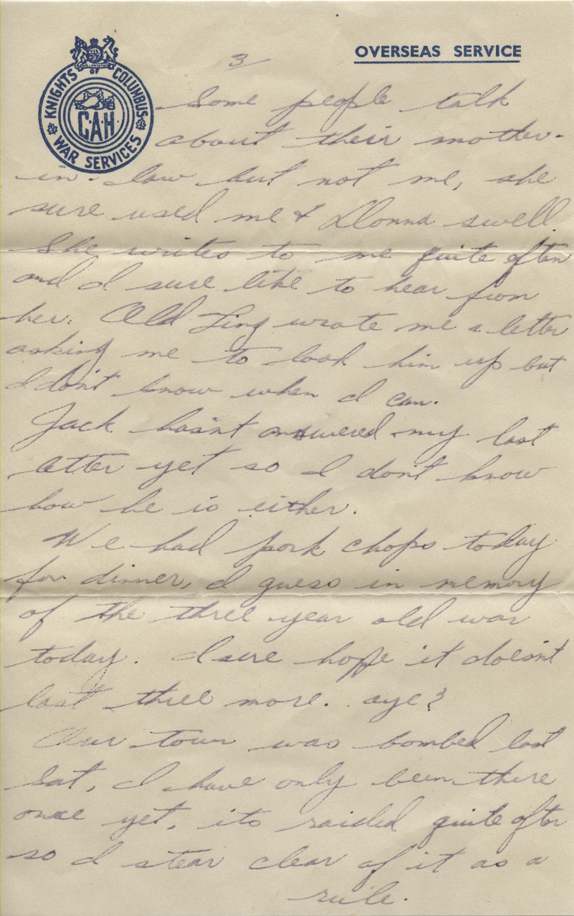 OVERSEAS SERVICE
KNIGHTS OF COLUMBUS
CAH
WAR SERVICES
3
Some people talk
about their mother-
in-law but not me, she
sure used me & Donna swell.
She writes to me quite often
and I sure like to hear from
her. Old wrote me a letter
asking me to look him up but
I don't know when I can.
Jack hasn't answered my last
letter yet so I don't know
how he is either.
We had pork chops today
for dinner, I guess in memory
of the three year old war
today. I sure hope it doesn't
last three more. aye?
Our town was bombed last
Sat, I have only been there
once yet, its raided quite often
so I stear clear of it as a
rule.